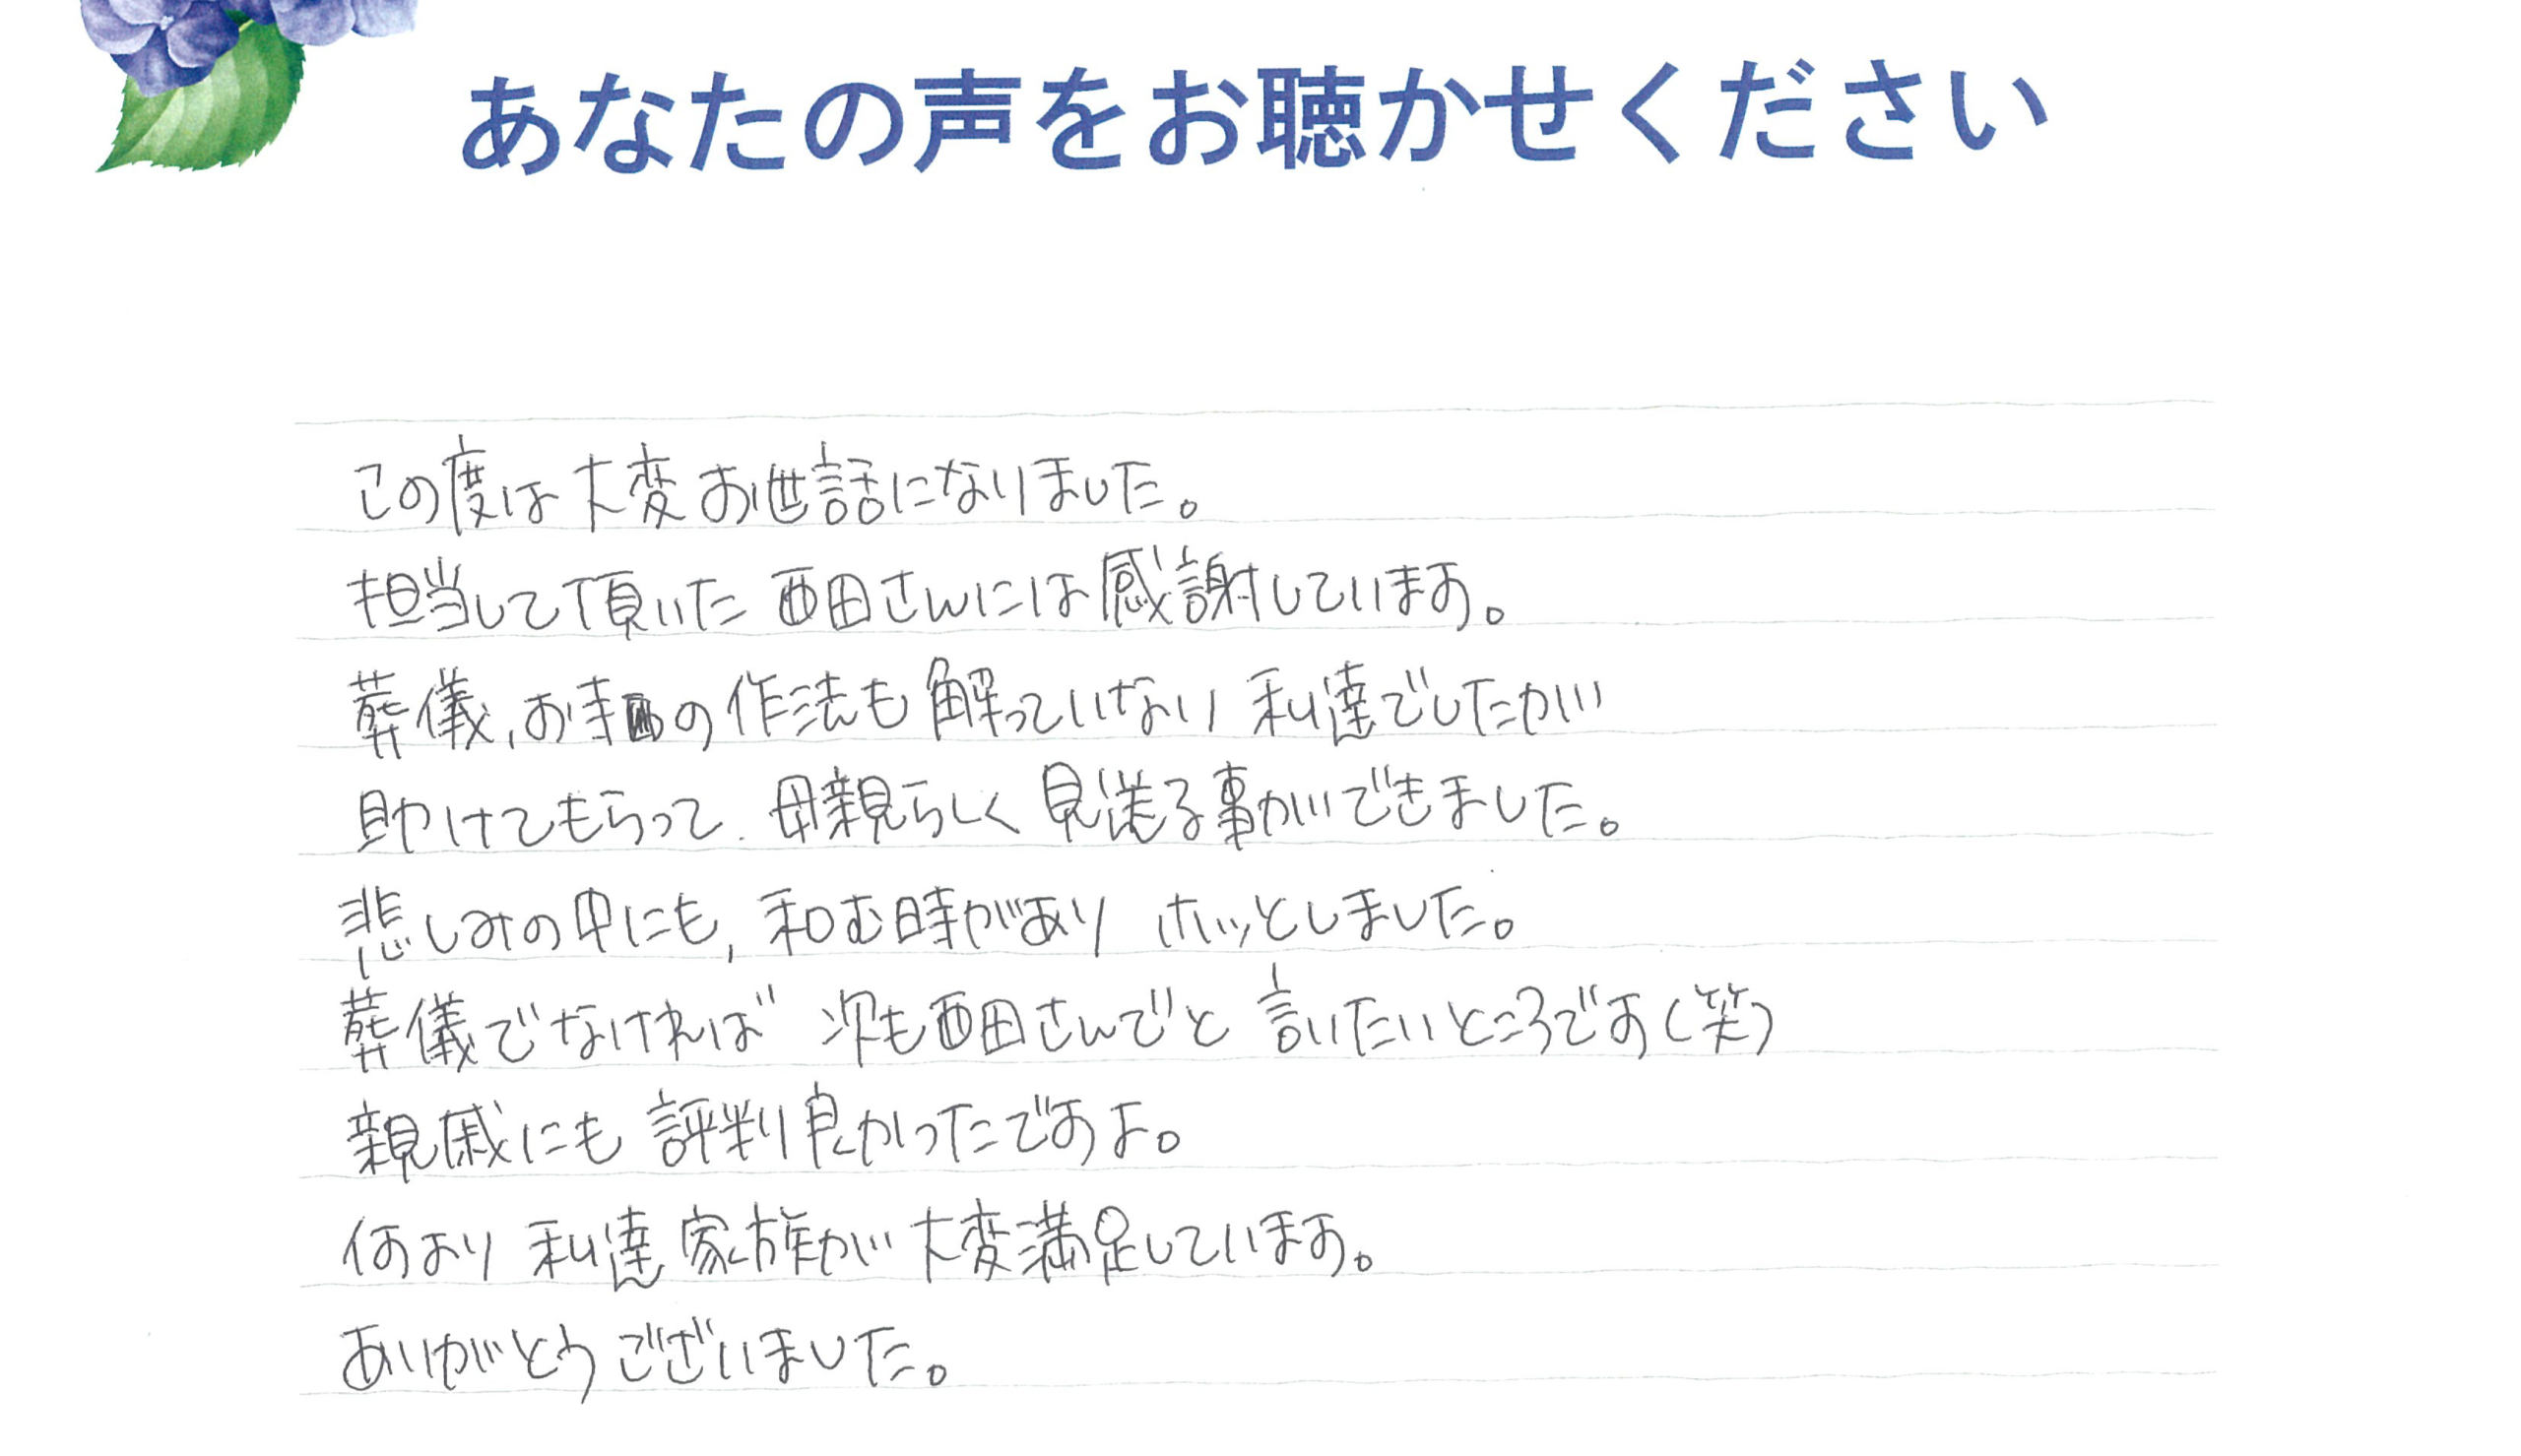 あなたの声をお聴かせください
この度は大変お世話になりました。
担当して頂いた西田さんには感謝しています。
葬儀、お寺の作法も解っていない私達でしたが
助けてもらって、母親らしく見送る事ができました。
悲しみの中にも、和む時があり ホッとしました。
葬儀でなければ 次も西田さんでと 言いたいところです(笑)
親戚にも評判良かったですよ。
何より 私達家族が大変満足しています。
ありがとうございました。